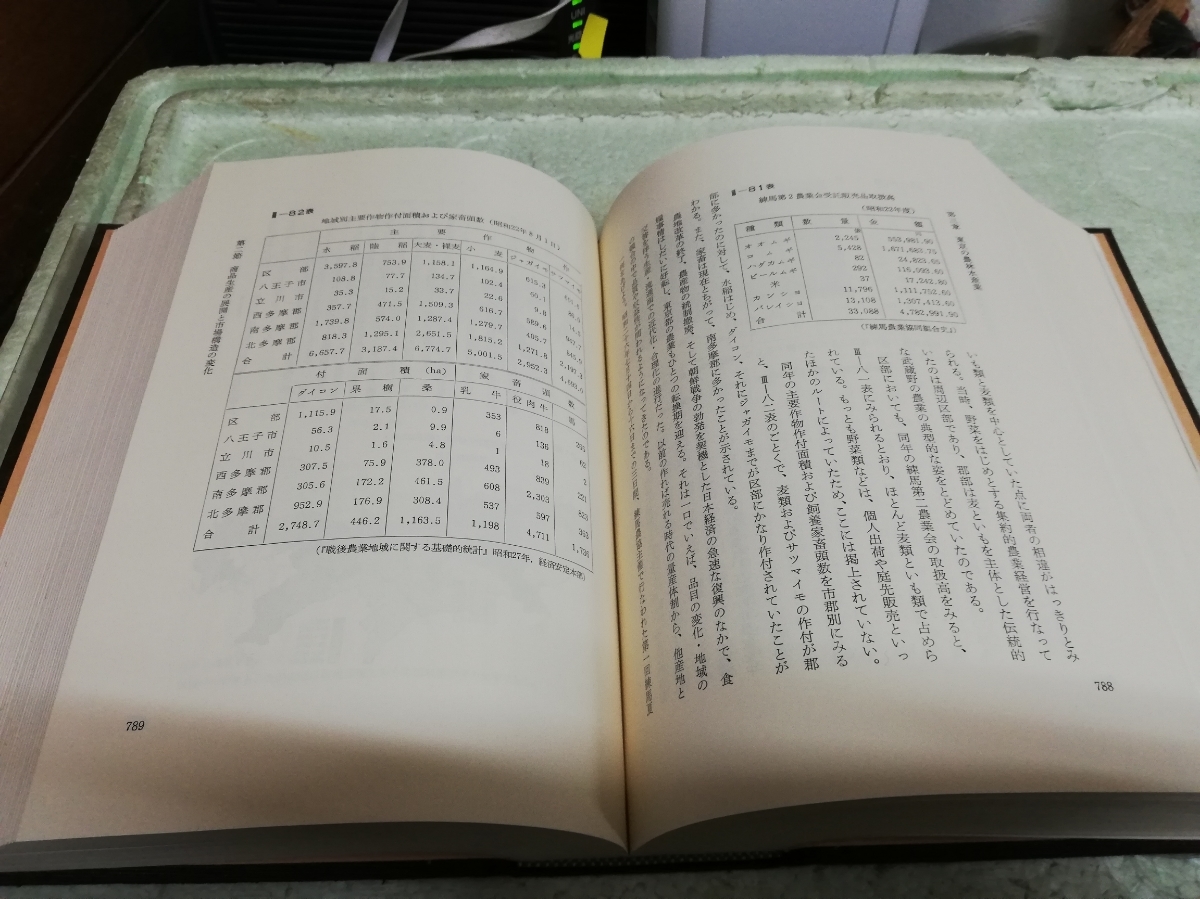 第三章 東京の農林水産業
Ⅲ—81表
練馬第2農業会学区販売品取扱高
(昭和22年度)
種類 数量 金額
オオムギ 2,245 553,981.95
コムギ 5,428 1,671,683.75
ハダカムギ 82 24,823.60
ビールムギ 292 116,093.60
米 37 17,242.80
カンショ 11,796 1,111,752.60
バレイショ 13,108 1,307,413.60
合計 33,088 4,782,991.95
(『練馬農業協同組合史』)
いも類と麦類を中心としていた点に両者の相違がはっきりとみ
られる。当時、野菜をはじめとする集約的農業経営を行なって
いたのは周辺区部であり、郡部は麦といもを主体とした伝統的
な武蔵野の農業の典型的な姿をとどめていたのである。
区部においても、同年の練馬第二農業会の取扱高をみると、
Ⅲ—八一表にみられるとおり、ほとんど麦類といも類で占めら
れている。もっとも野菜類などは、個人出荷や庭先販売といっ
たほかのルートによっていたため、ここには掲上されていない。
同年の主要作物作付面積および飼養家畜頭数を市郡別にみる
と、Ⅲ—八二表のごとくで、麦類およびサツマイモの作付が郡
部に多かったのに対して、水稲はじめ、ダイコン、それにジャガイモまでが区部にかなり作付されていたことが
わかる。また、家畜は現在とちがって、南多摩郡に多かったことが示されている。
農地改革の終了、農産物の統制撤廃、そして朝鮮戦争の勃発を契機とした日本経済の急速な復興のなかで、食
糧事情はしだいに好転し、東京都の農業もひとつの転換期を迎える。それは一口でいえば、品目の変化・地域の
788
Ⅲ—82表
地域別主要作物作付面積および家畜頭数(昭和22年8月1日)
主要作物
水稲 陸稲 大麦・裸麦 小麦 ジャガイモ サツマイモ
区部 3,597.8 753.9 1,158.1 1,164.9 615.3
八王子市 108.8 77.7 134.7 102.4 65.1
立川市 35.3 15.2 33.7 22.6 9.8
西多摩郡 357.7 471.5 1,509.3 616.7 589.6
南多摩郡 1,739.8 574.0 1,287.4 1,279.7 405.7
北多摩郡 818.3 1,295.1 2,651.5 1,815.2 1,271.8
合計 6,657.7 3,187.4 6,774.7 5,001.5 2,952.3
付面積(ha) 家畜頭数
ダイコン 果樹 桑 乳牛 役肉牛
区部 1,115.9 17.5 0.9 353 818
八王子市 56.3 2.1 9.9 6 136 62
立川市 10.5 1.6 4.8 1 18 2
西多摩郡 307.5 75.9 378.0 493 839
南多摩郡 305.6 172.2 461.5 608 2,303 825
北多摩郡 952.9 176.9 308.4 537 597
合計 2,748.7 446.2 1,163.5 1,198 4,711
(『戦後農業地域に関する基礎的統計』昭和27年,経済安定本部)
第二節 商品生産の展開と市場構造の変化
789